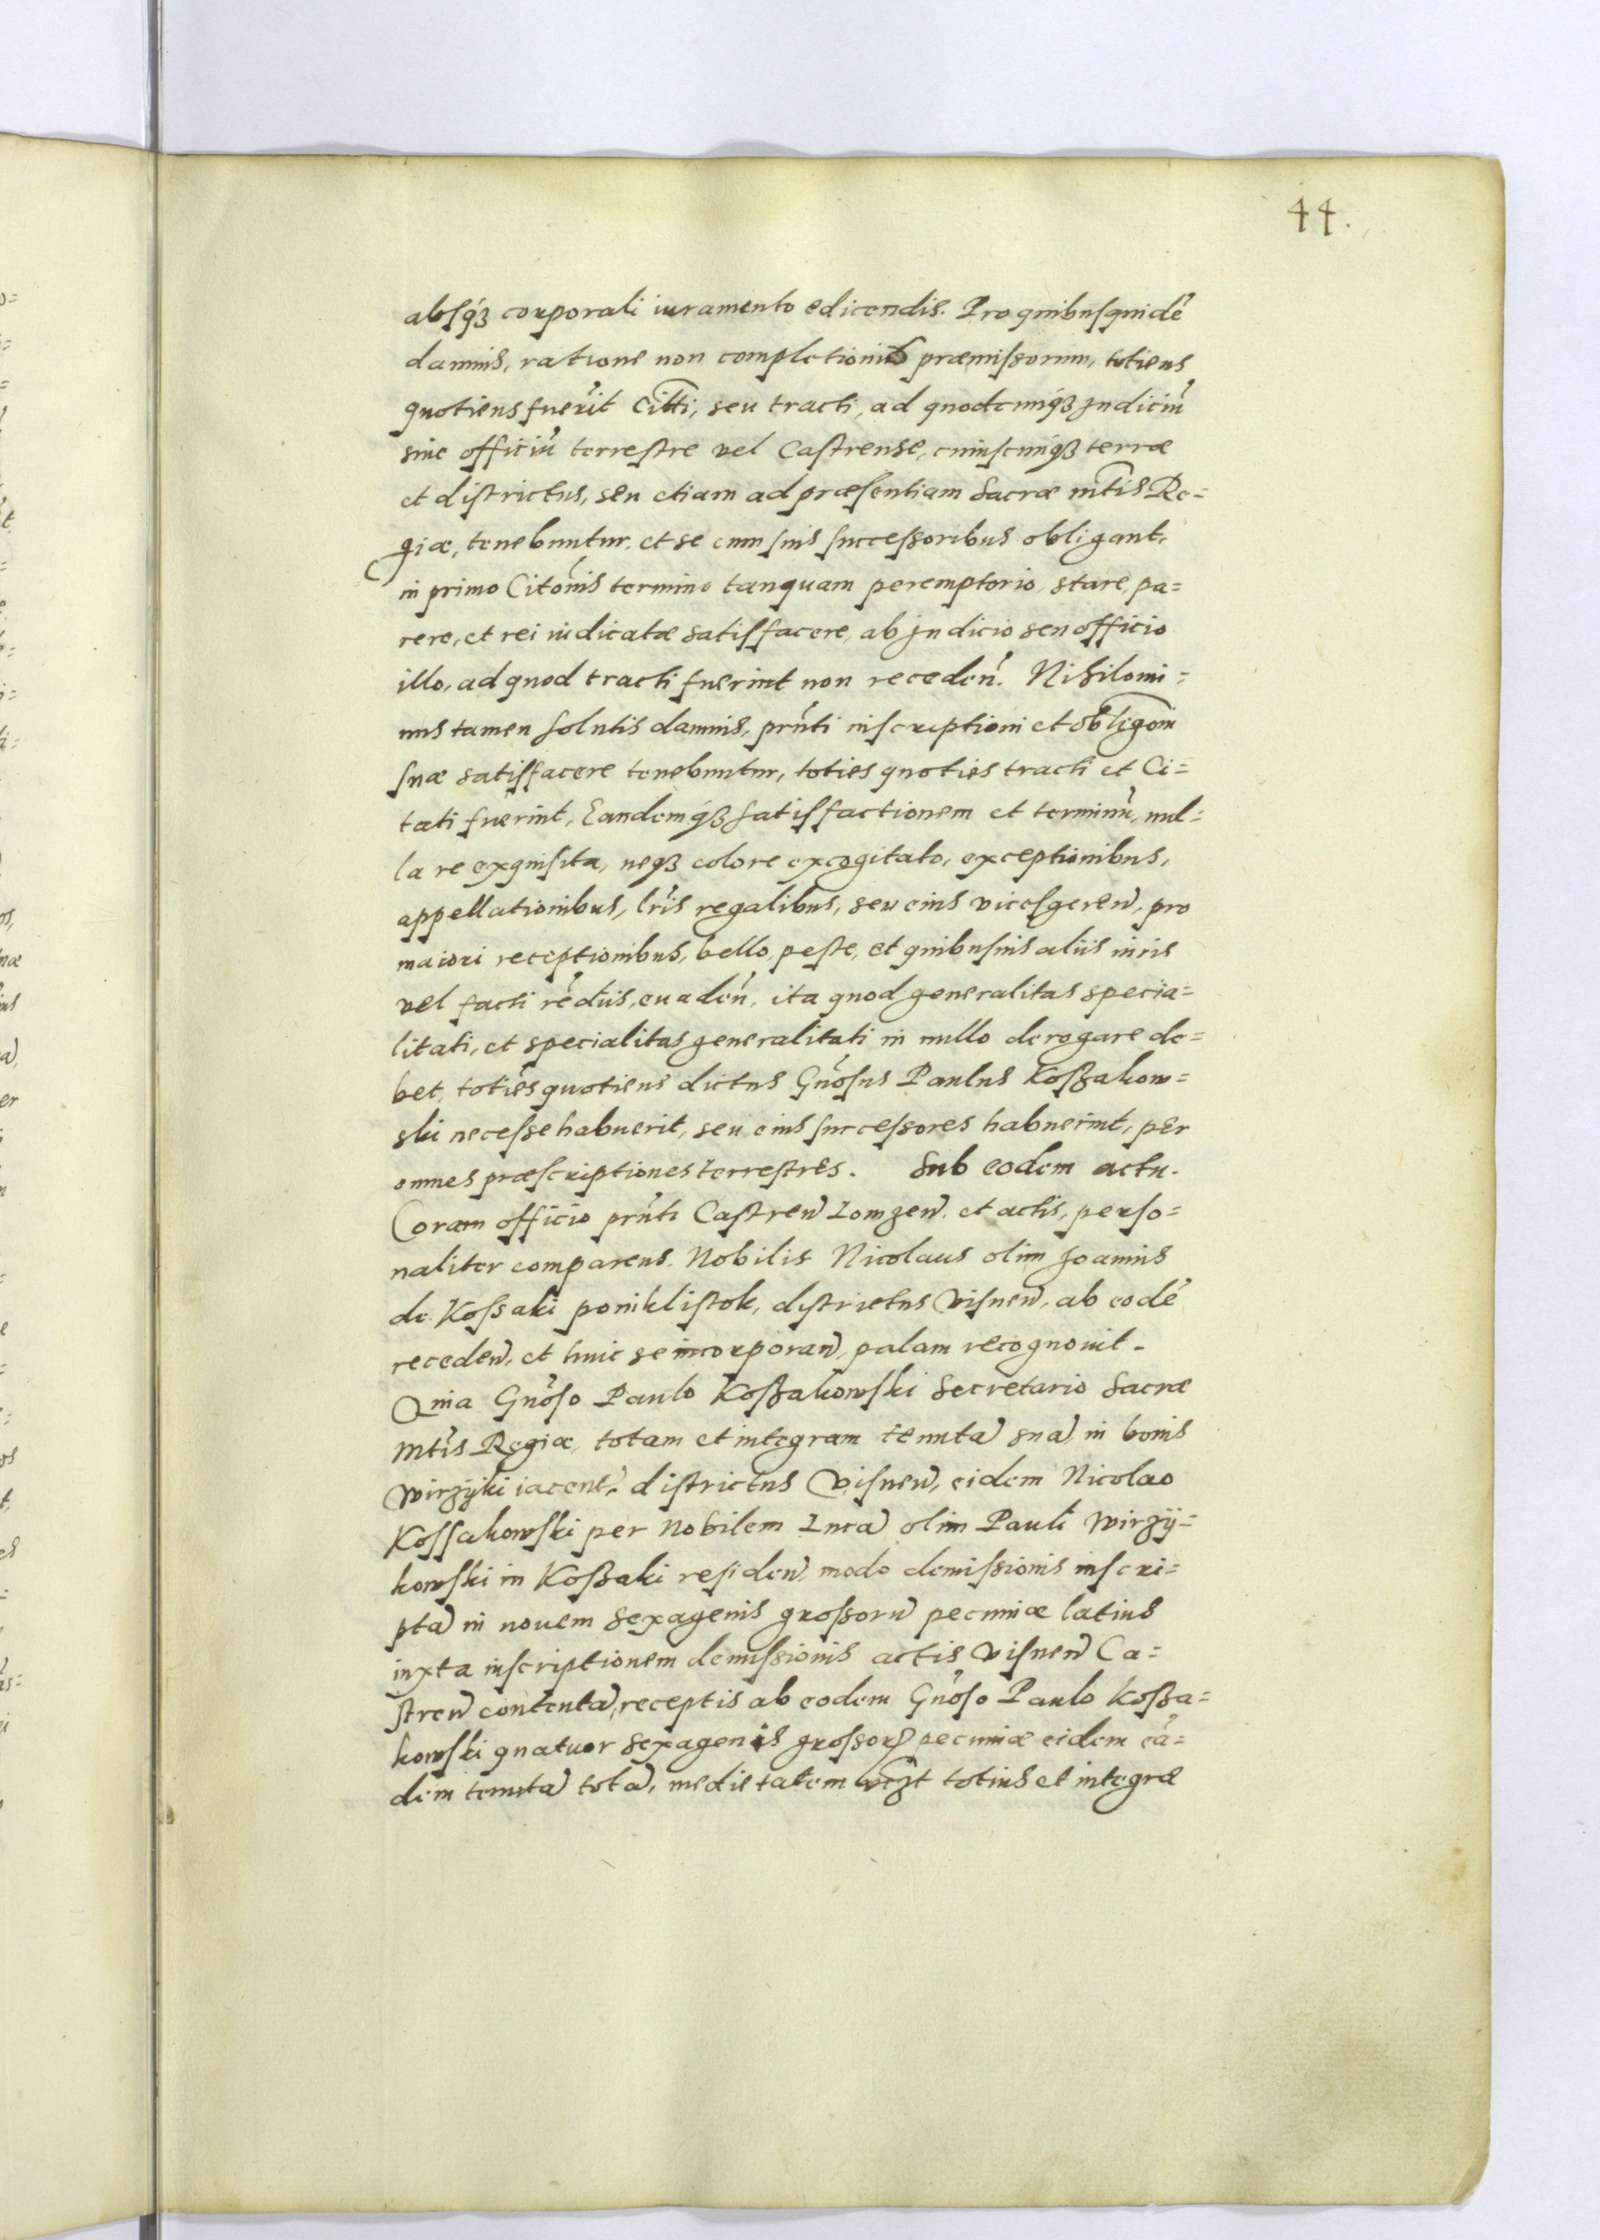 44.
absq́ꝫ corporali iuramento edicendis. Pro quibusquidē
damnis, ratione non completionis præmissorum, totiens
quotiens fuerīt Citti, seu tracti, ad quodcunq́ꝫ Judiciū
siue officiū terrestre vel Castrense, cuiuscunq́ꝫ terræ
et districtus, seu etiam ad præsentiam Sacræ mtis Re=
giæ, tenebuntur, et se cum suis successoribus obligant,
in primo Citonis termino tanquam peremptorio, stare, pa=
rere, et rei iudicatæ satisfacere, ab Judicio seu officio
illo, ad quod tracti fuerint non receden̄. Nihilomi=
nus tamen solutis damnis, prn̄ti inscriptioni et obligoni
suæ satisfacere tenebuntur, toties quoties tracti et Ci=
tati fuerint, Eandemq́ꝫ satisfactionem et terminū, nul=
la re exquisita, neqꝫ colore excogitato, exceptionibus,
appellationibus, lr̄is regalibus, seu eius vicesgeren̄, pro
maiori receptionibus, bello, peste, et quibusuis aliis iuris
vel facti rēdiis, euaden̄, ita quod generalitas specia=
litati, et specialitas generalitati in nullo derogare de=
bet, totiēs quotiens dictus Gn̄osus Paulus Koßakow=
ski necesse habuerit, seu eius successores habuerint, per
omnes præscriptiones terrestres. Sub eodem actu.
Coram officio prn̄ti Castren̄ Lomzen̄. et actis, perso=
naliter comparens. Nobilis Nicolaus olim Joannis
de Kossaki poniklistok, districtus Visnen̄, ab eodē
receden̄, et huic se incorporan̄, palam recognouit.
Quia Gn̄oso Paulo Koßakowski Secretario Sacræ
Mtis Regiæ, totam et integram tenutā suā in bonis
Wirzÿki iacent̄, districtus Visnen̄, eidem Nicolao
Kossakowski per Nobilem Lucā olim Pauli Wirzÿ=
kowski in Koßaki residen̄ modo demissionis inscri=
ptā in nouem sexagenis grossorū pecuniæ latius
iuxta inscriptionem demissionis actis Visnen̄ Ca=
stren̄ contentā, receptis ab eodem Gn̄oso Paulo Koßa=
kowski quatuor sexagenis grossorꝝ pecuniæ eidem eā=
dem tenutā totā, medietatem vꝫt totius et integræ